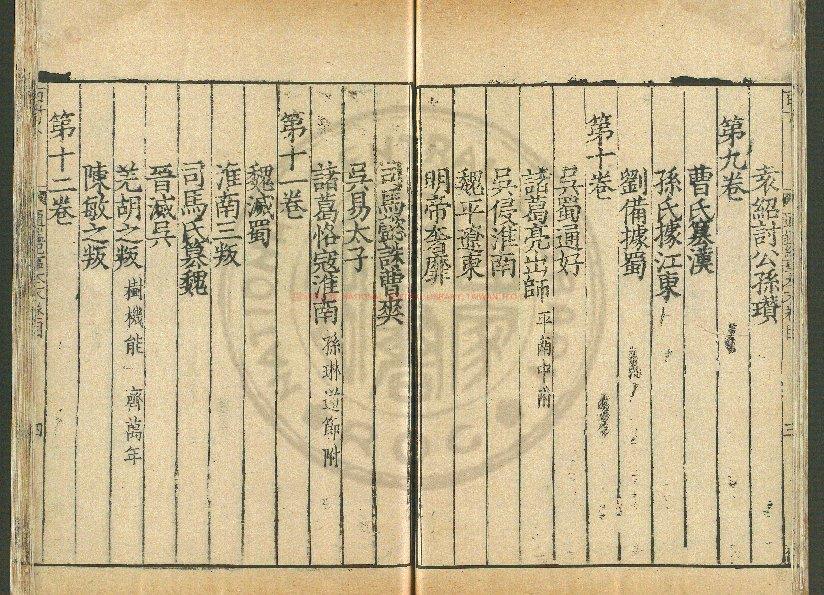 袁紹討公孫瓚
第九卷
曹氏篡漢
孫氏據江東
劉備據蜀
第十卷
吳蜀通好
諸葛亮出師 平南中附
吳侵淮南
魏平遼東
明帝奢靡
司馬懿誅曹爽
吳易太子
諸葛恪寇淮南 孫琳逆節附
第十一卷
魏滅蜀
淮南三叛
司馬氏篡魏
晉滅吳
羌胡之叛 樹機能 齊萬年
陳敏之叛
第十二卷
四
三